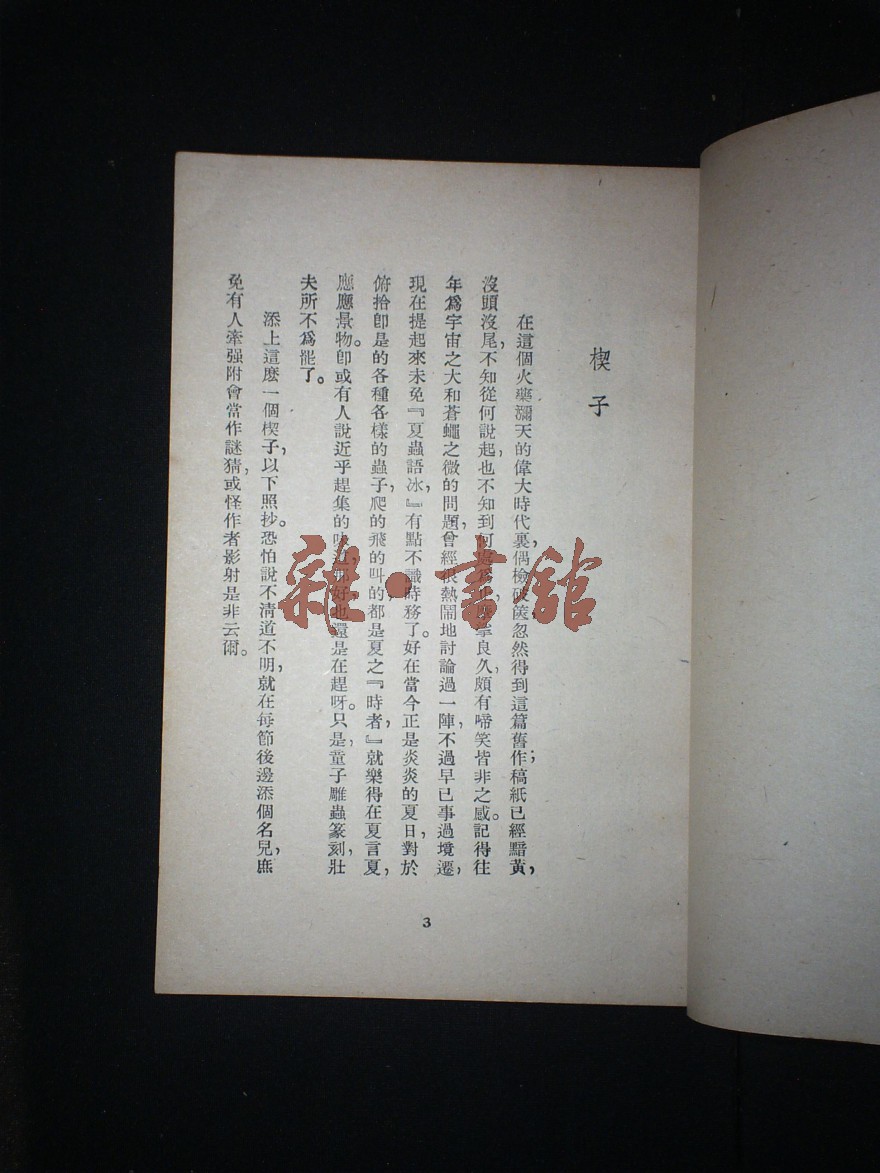 楔子
在這個火藥瀰天的偉大時代裏，偶檢破篋，忽然得到這篇舊作；稿紙已經黯黃，
沒頭沒尾，不知從何說起，也不知到何良久，頗有啼笑皆非之感。記得往
年爲宇宙之大和蒼蠅之微的問題，曾經很熱鬧地討論過一陣，不過早已事過境遷，
現在提起來未免『夏蟲語冰，』有點不識時務了。好在當今正是炎炎的夏日，對於
俯拾卽是的各種各樣的蟲子，爬的飛的叫的，都是夏之『時者，』就樂得在夏言夏，
應應景物。卽或有人說近乎趕集的味道，那好，也還是在趕呀。只是，童子雕蟲篆刻，壯
夫所不爲罷了。
添上這麽一個楔子，以下照抄。恐怕說不清道不明，就在每節後邊添個名兒，庶
免有人牽强附會當作謎猜，或怪作者影射是非云爾。
3
雜·書館